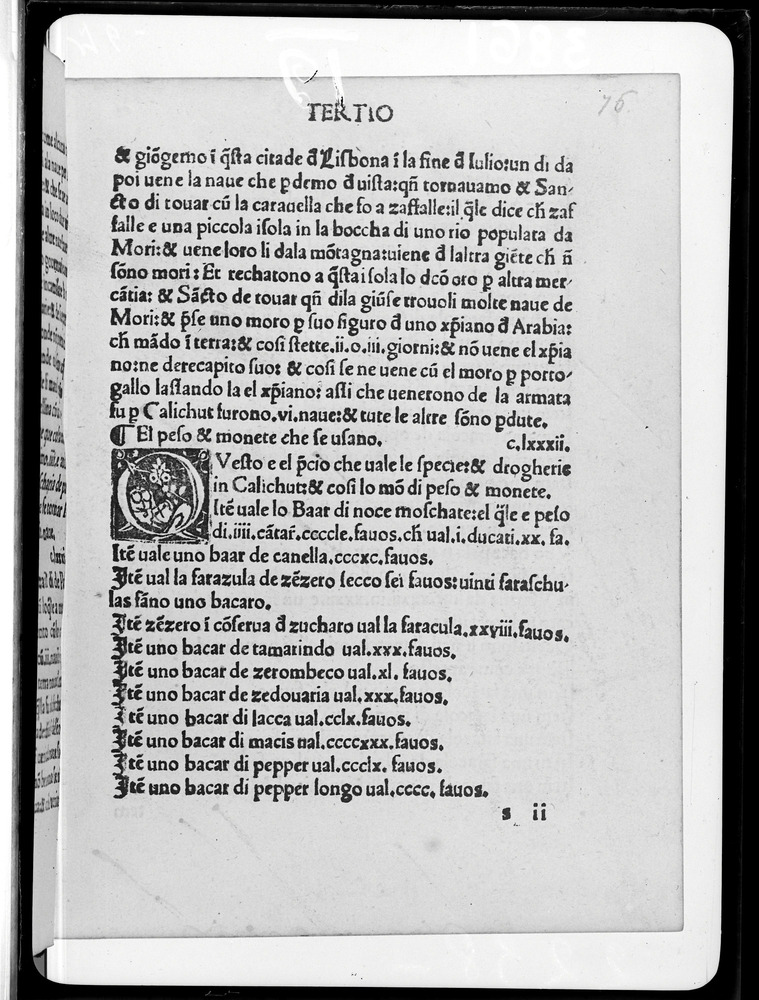 TERTIO
76
& giõgemo ĩ q̃sta citade đ Lisbona ĩ la fine đ Iulio:un di da
poi uene la naue che ꝑdemo đ uista:qñ tornauamo & San-
cto di touar cũ la carauella che fo a zaffalle:il q̃le dice ch̃ zaf
falle e una piccola isola in la boccha di uno rio populata da
Mori:& uene loro li dala mõtagna:uiene đ laltra giẽte ch̃ ñ
sõno mori: Et rechatono a q̃sta isola lo dcõ oro ꝑ altra mer-
cãtia: & Sãcto de touar qñ dila giũse trouoli molte naue de
Mori:& p̃se uno moro ꝑ suo figuro đ uno xp̃iano đ Arabia:
ch̃ mãdo ĩ terra:& cosi stette.ii.o.iii.giorni:& nõ uene el xp̃ia
no:ne derecapito suo: & cosi se ne uene cũ el moro ꝑ porto-
gallo lassando la el xp̃iano: assi che uenerono de la armata
fu ꝑ Calichut furono.vi.naue:& tute le altre sõno ꝑdute.
¶ El peso & monete che se usano. c.lxxxii.
QVesto e el p̃cio che uale le specie:& drogherie
in Calichut:& cosi lo mõ di peso & monete.
Itẽ uale lo Baar di noce moschate:el q̃le e peso
di.iiii.cãtar̃.ccccle.fauos.ch̃ ual.i.ducati.xx. fa.
Itẽ uale uno baar de canella.cccxc.fauos.
Itẽ ual la farazula de zẽzero secco sei fauos:uinti faraschu-
las fãno uno bacaro.
Itẽ zẽzero ĩ cõserua đ zucharo ual la faracula.xxviii.fauos.
Itẽ uno bacar de tamarindo ual.xxx.fauos.
Itẽ uno bacar de zerombeco ual.xl. fauos.
Itẽ uno bacar de zedouaria ual.xxx.fauos.
Itẽ uno bacar di lacca ual.cclx.fauos.
Itẽ uno bacar di macis ual.ccccxxx.fauos.
Itẽ uno bacar di pepper ual.ccclx. fauos.
Itẽ uno bacar di pepper longo ual.cccc. fauos.
s ii